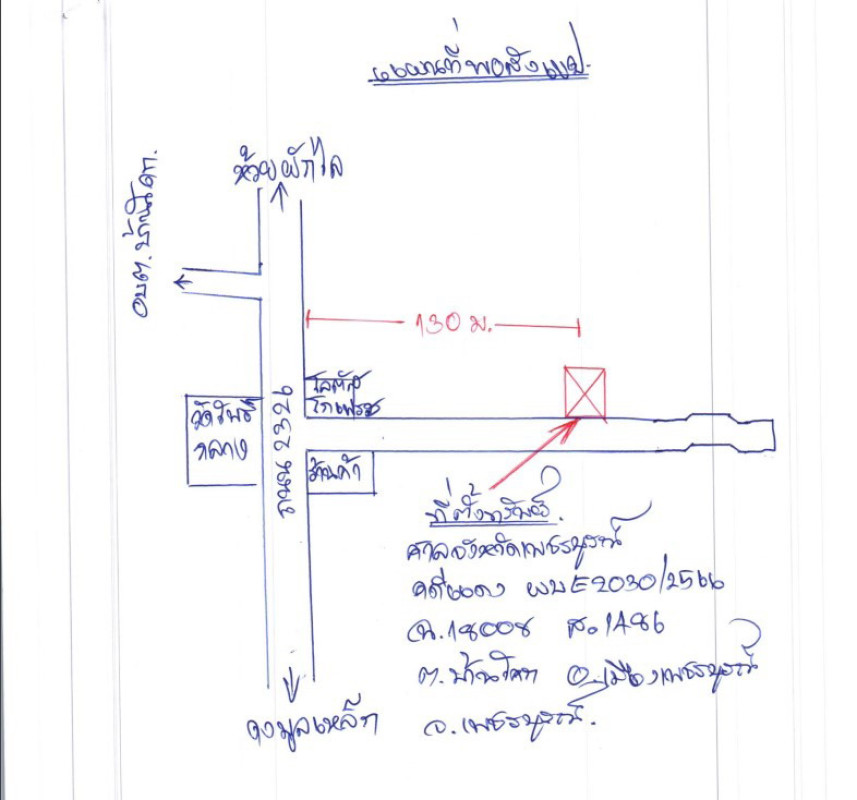 แผนที่พอสังเขป
ห้วยผักไล
อบต.บ้านโตก.
130 ม.
โลตัส
โกเฟรช
วัดโพธิ์
กลาง
ถนน 2326
ร้านค้า
ที่ตั้งทรัพย์.
ศาลจังหวัดเพชรบูรณ์
คดีแดง ผบE2030/2566
ฉ.18008 ส.1486
ต.บ้านโตก อ.เมืองเพชรบูรณ์
จ.เพชรบูรณ์.
ดงมูลเหล็ก